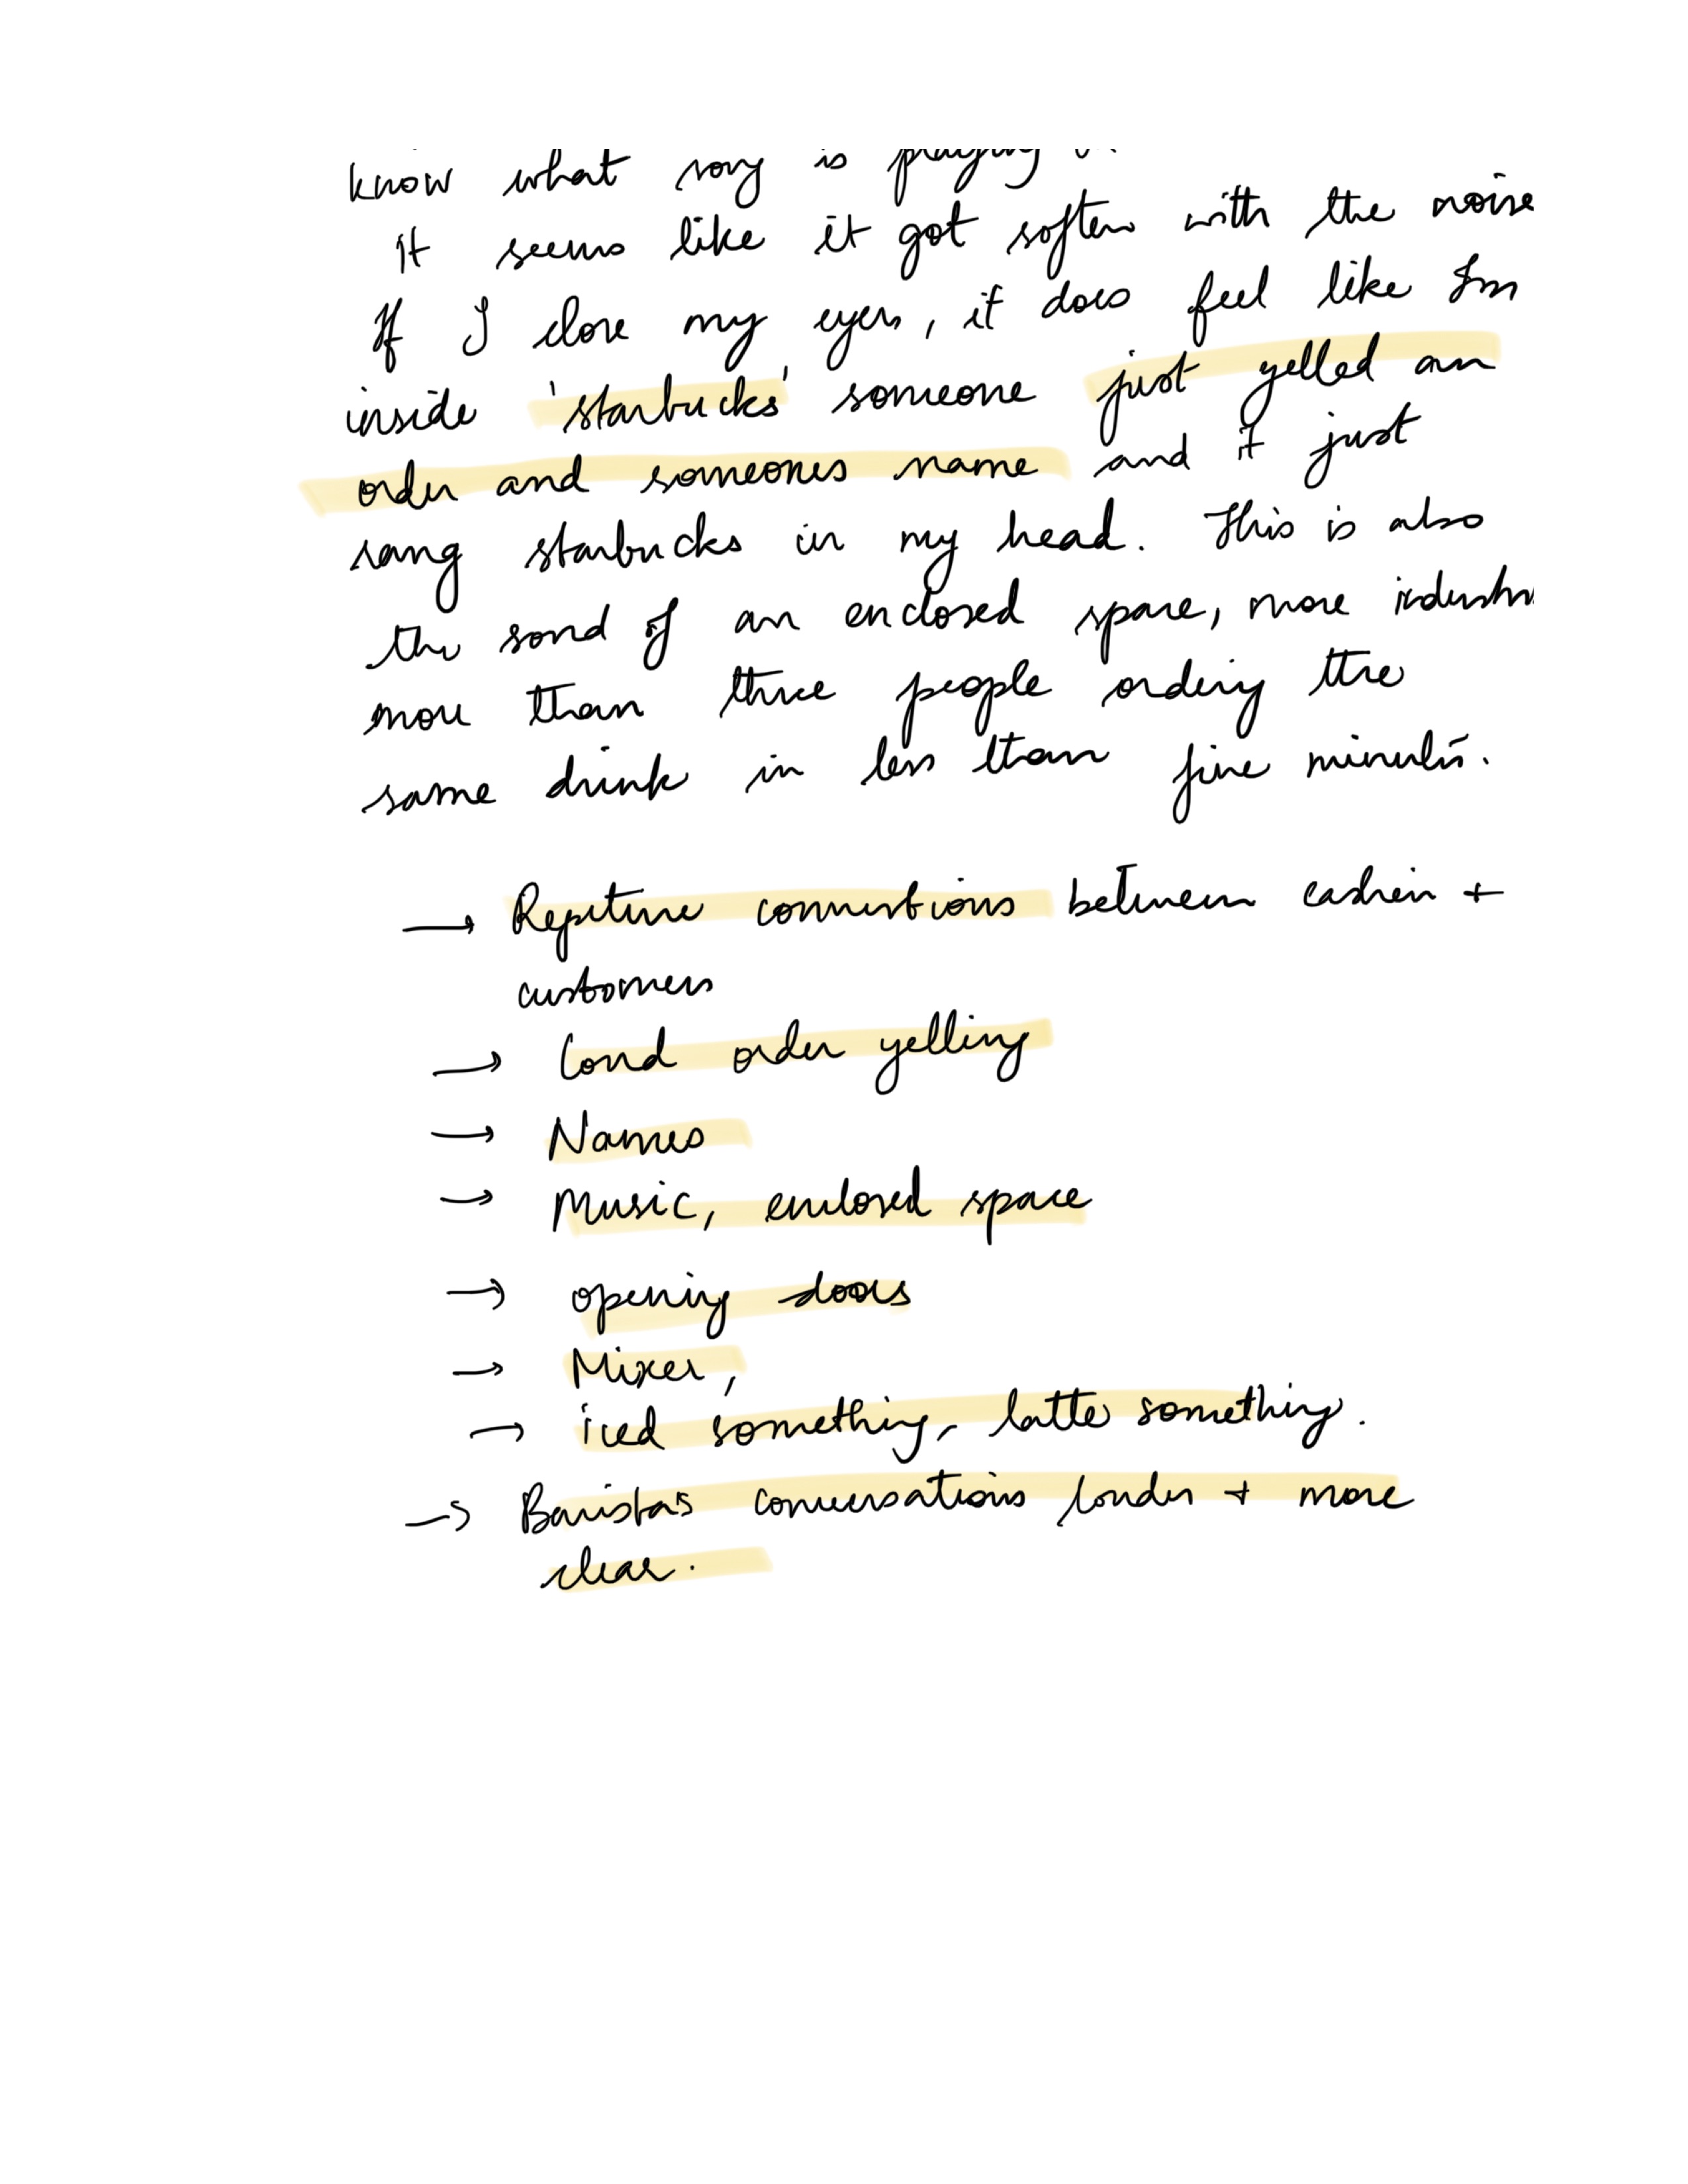 know what song is playing
it seems like it got softer with the noise
If I close my eyes, it does feel like Im
inside 'starbucks' someone just yelled an
order and someones name and it just
rang starbucks in my head. This is also
the sond of an enclosed space, more industri
more than three people ordering the
same drink in less than five minutes.
→ Repetitive conversations between cashier +
customers
→ Loud order yelling
→ Names
→ Music, enclosed space
→ opening doors
→ Mixer,
→ iced something, latte something.
→ Barista's conversations louder + more
clear.